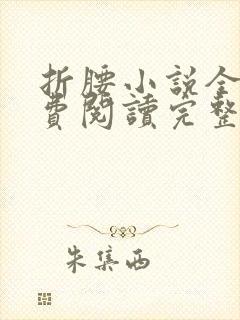 折腰小说全
費閱讀完整
朱集西